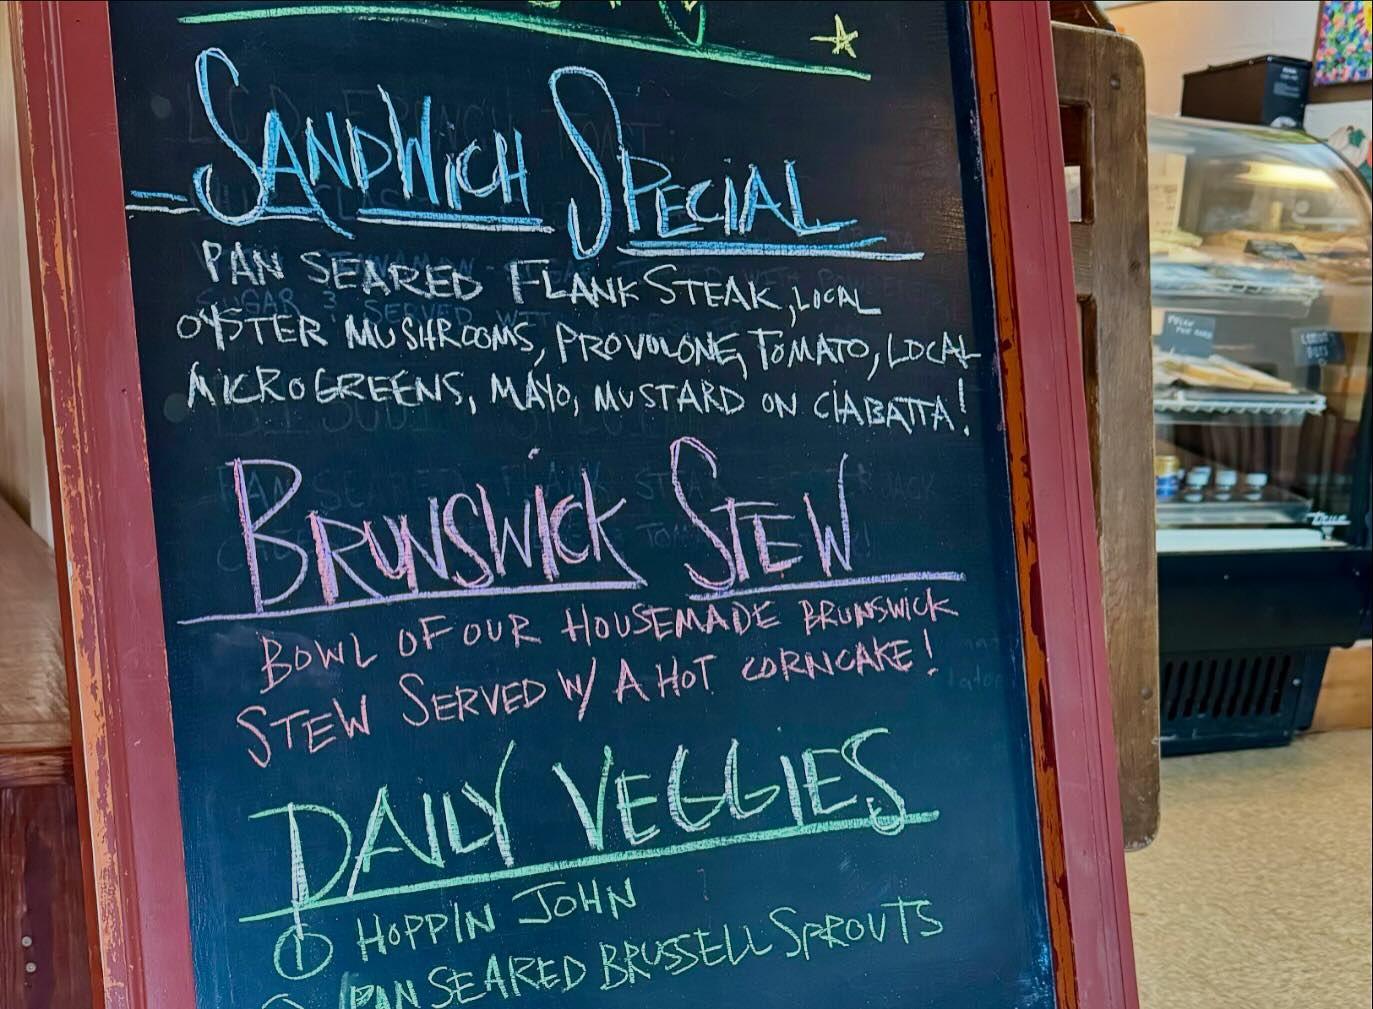 SANDWICH SPECIAL
PAN SEARED FLANK STEAK, LOCAL
OYSTER MUSHROOMS, PROVOLONE, TOMATO, LOCAL
MICROGREENS, MAYO, MUSTARD ON CIABATTA!
BRUNSWICK STEW
BOWL OF OUR HOUSEMADE BRUNSWICK
STEW SERVED W/ A HOT CORNCAKE!
DAILY VEGGIES
① HOPPIN JOHN
PAN SEARED BRUSSELL SPROUTS
true